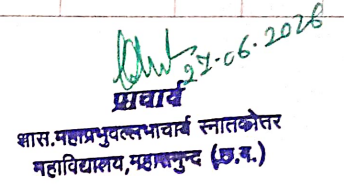 27.06.2026
प्राचार्य
शास.महाप्रभुवल्लभाचार्य स्नातकोत्तर
महाविद्यालय,महासमुन्द (छ.ग.)